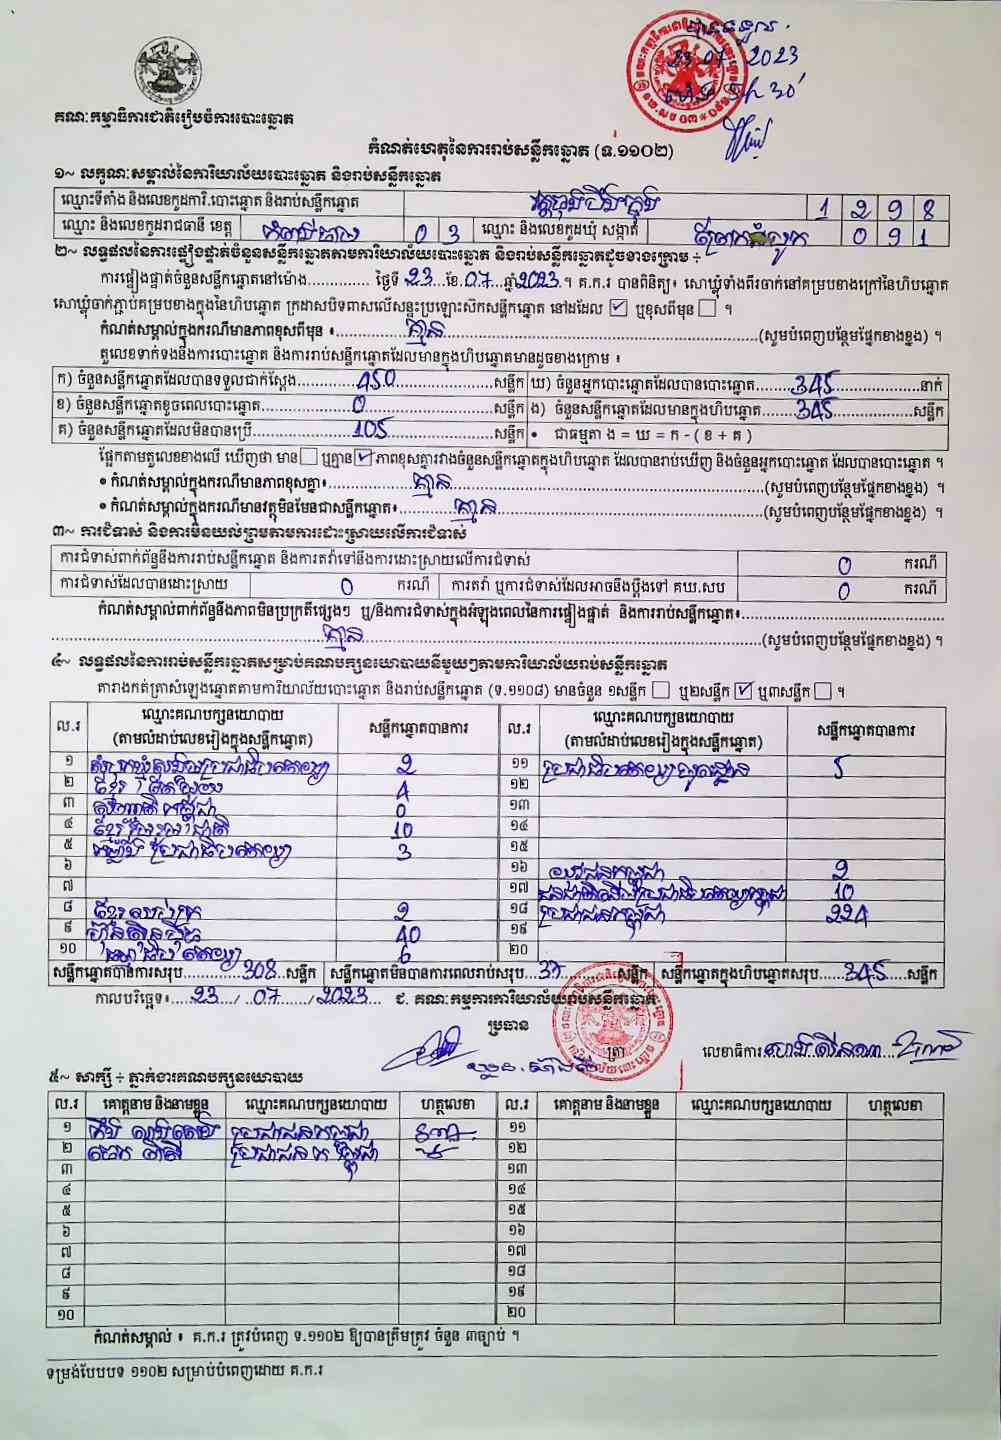 23 07 2023
គណៈកម្មាធិការជាតិរៀបចំការបោះឆ្នោត
កំណត់ហេតុនៃការរាប់សន្លឹកឆ្នោត (ទ.១១០២)
១~ លក្ខណៈសម្គាល់នៃការិយាល័យបោះឆ្នោត និងរាប់សន្លឹកឆ្នោត
ឈ្មោះទីតាំង និងលេខកូដការិ.បោះឆ្នោត និងរាប់សន្លឹកឆ្នោត 1 2 9 8
ឈ្មោះ និងលេខកូដរាជធានី ខេត្ត កំពង់ចាម 0 3 ឈ្មោះ និងលេខកូដឃុំ សង្កាត់ 0 9 1
២~ លទ្ធផលនៃការផ្ទៀងផ្ទាត់ចំនួនសន្លឹកឆ្នោតតាមការិយាល័យបោះឆ្នោត និងរាប់សន្លឹកឆ្នោតដូចខាងក្រោម ៖
ការផ្ទៀងផ្ទាត់ចំនួនសន្លឹកឆ្នោតនៅម៉ោង.............. ថ្ងៃទី 23 ខែ 07 ឆ្នាំ 2023 ។ គ.ក.រ បានពិនិត្យ៖ សោឃ្លុំទាំងពីរចាក់នៅគម្របខាងក្រៅនៃហិបឆ្នោត
សោឃ្លុំចាក់ភ្ជាប់គម្របខាងក្នុងនៃហិបឆ្នោត ក្រដាសបិទពាសលើសន្ទះប្រឡោះសិកសន្លឹកឆ្នោត នៅដដែល ☑ ឬខុសពីមុន ☐ ។
កំណត់សម្គាល់ក្នុងករណីមានភាពខុសពីមុន ៖ គ្មាន (សូមបំពេញបន្ថែមផ្នែកខាងខ្នង) ។
តួលេខទាក់ទងនឹងការបោះឆ្នោត និងការរាប់សន្លឹកឆ្នោតដែលមានក្នុងហិបឆ្នោតមានដូចខាងក្រោម ៖
ក) ចំនួនសន្លឹកឆ្នោតដែលបានទទួលជាក់ស្តែង 450 សន្លឹក ឃ) ចំនួនអ្នកបោះឆ្នោតដែលបានបោះឆ្នោត 345 នាក់
ខ) ចំនួនសន្លឹកឆ្នោតខូចពេលបោះឆ្នោត 0 សន្លឹក ង) ចំនួនសន្លឹកឆ្នោតដែលមានក្នុងហិបឆ្នោត 345 សន្លឹក
គ) ចំនួនសន្លឹកឆ្នោតដែលមិនបានប្រើ 105 សន្លឹក • ជាធម្មតា ង = ឃ = ក - ( ខ + គ )
ផ្អែកតាមតួលេខខាងលើ ឃើញថា មាន ☐ ឬគ្មាន ☑ ភាពខុសគ្នារវាងចំនួនសន្លឹកឆ្នោតក្នុងហិបឆ្នោត ដែលបានរាប់ឃើញ និងចំនួនអ្នកបោះឆ្នោត ដែលបានបោះឆ្នោត ។
• កំណត់សម្គាល់ក្នុងករណីមានភាពខុសគ្នា៖ គ្មាន (សូមបំពេញបន្ថែមផ្នែកខាងខ្នង) ។
• កំណត់សម្គាល់ក្នុងករណីមានវត្ថុមិនមែនជាសន្លឹកឆ្នោត៖ គ្មាន (សូមបំពេញបន្ថែមផ្នែកខាងខ្នង) ។
៣~ ការជំទាស់ និងការមិនយល់ព្រមតាមការដោះស្រាយលើការជំទាស់
ការជំទាស់ពាក់ព័ន្ធនឹងការរាប់សន្លឹកឆ្នោត និងការតវ៉ាទៅនឹងការដោះស្រាយលើការជំទាស់ 0 ករណី
ការជំទាស់ដែលបានដោះស្រាយ 0 ករណី ការតវ៉ា ឬការជំទាស់ដែលអាចនឹងប្តឹងទៅ គឃ.សប 0 ករណី
កំណត់សម្គាល់ពាក់ព័ន្ធនឹងភាពមិនប្រក្រតីផ្សេងៗ ឬ/និងការជំទាស់ក្នុងអំឡុងពេលនៃការផ្ទៀងផ្ទាត់ និងការរាប់សន្លឹកឆ្នោត៖
គ្មាន (សូមបំពេញបន្ថែមផ្នែកខាងខ្នង) ។
៤~ លទ្ធផលនៃការរាប់សន្លឹកឆ្នោតសម្រាប់គណបក្សនយោបាយនីមួយៗតាមការិយាល័យរាប់សន្លឹកឆ្នោត
តារាងកត់ត្រាសំឡេងឆ្នោតតាមការិយាល័យបោះឆ្នោត និងរាប់សន្លឹកឆ្នោត (ទ.១១០៨) មានចំនួន ១សន្លឹក ☐ ឬ២សន្លឹក ☑ ឬ៣សន្លឹក ☐ ។
ល.រ ឈ្មោះគណបក្សនយោបាយ (តាមលំដាប់លេខរៀងក្នុងសន្លឹកឆ្នោត) សន្លឹកឆ្នោតបានការ ល.រ ឈ្មោះគណបក្សនយោបាយ (តាមលំដាប់លេខរៀងក្នុងសន្លឹកឆ្នោត) សន្លឹកឆ្នោតបានការ
១ សំបុកឃ្មុំសង្គមប្រជាធិបតេយ្យ 2 ១១ 5
២ 4 ១២
៣ 0 ១៣
៤ 10 ១៤
៥ ប្រជាធិបតេយ្យ 3 ១៥
៦ ១៦ យុវជនកម្ពុជា 2
៧ ១៧ 10
៨ 2 ១៨ ប្រជាជនកម្ពុជា 224
៩ ហ៊្វុនស៊ិនប៉ិច 40 ១៩
១០ 6 ២០
សន្លឹកឆ្នោតបានការសរុប 308 សន្លឹក សន្លឹកឆ្នោតមិនបានការពេលរាប់សរុប 37 សន្លឹក សន្លឹកឆ្នោតក្នុងហិបឆ្នោតសរុប 345 សន្លឹក
កាលបរិច្ឆេទ៖ 23 / 07 / 2023 ជ. គណៈកម្មការការិយាល័យរាប់សន្លឹកឆ្នោត
ប្រធាន
ត្រា
លេខាធិការ
៥~ សាក្សី ៖ ភ្នាក់ងារគណបក្សនយោបាយ
ល.រ គោត្តនាម និងនាមខ្លួន ឈ្មោះគណបក្សនយោបាយ ហត្ថលេខា ល.រ គោត្តនាម និងនាមខ្លួន ឈ្មោះគណបក្សនយោបាយ ហត្ថលេខា
១ ប្រជាជនកម្ពុជា ១១
២ ប្រជាជនកម្ពុជា ១២
៣ ១៣
៤ ១៤
៥ ១៥
៦ ១៦
៧ ១៧
៨ ១៨
៩ ១៩
១០ ២០
កំណត់សម្គាល់ ៖ គ.ក.រ ត្រូវបំពេញ ទ.១១០២ ឱ្យបានត្រឹមត្រូវ ចំនួន ៣ច្បាប់ ។
ទម្រង់បែបបទ ១១០២ សម្រាប់បំពេញដោយ គ.ក.រ